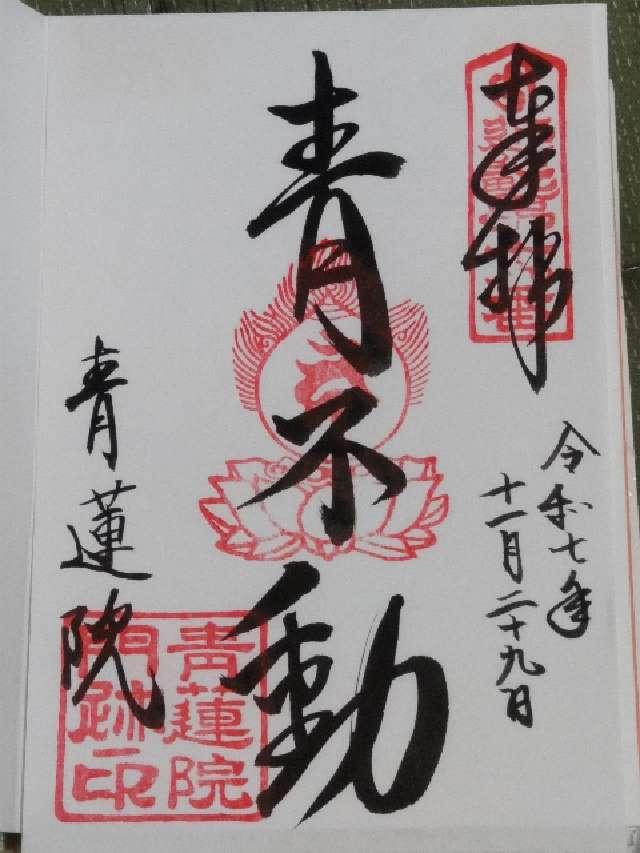 奉拝
令和七年
十一月二十九日
青不動
青蓮院
青蓮院
門跡印